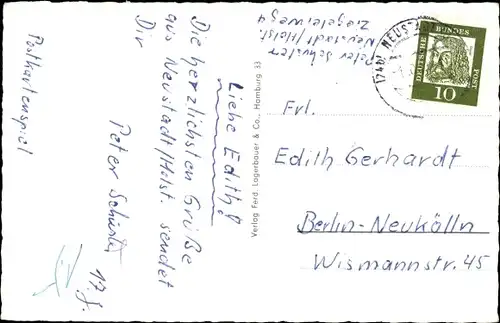 Peter Schuster
Neustadt/Holst.
Ziegeleiweg 9
Liebe Edith!
Die herzlichsten Grüße
aus Neustadt/Holst. sendet
Dir
Peter Schuster 17 J.
Postkartenspiel
Verlag Ferd. Lagerbauer & Co., Hamburg 33
DEUTSCHE BUNDES POST
10
Frl.
Edith Gerhardt
Berlin-Neukölln
Wismannstr. 45